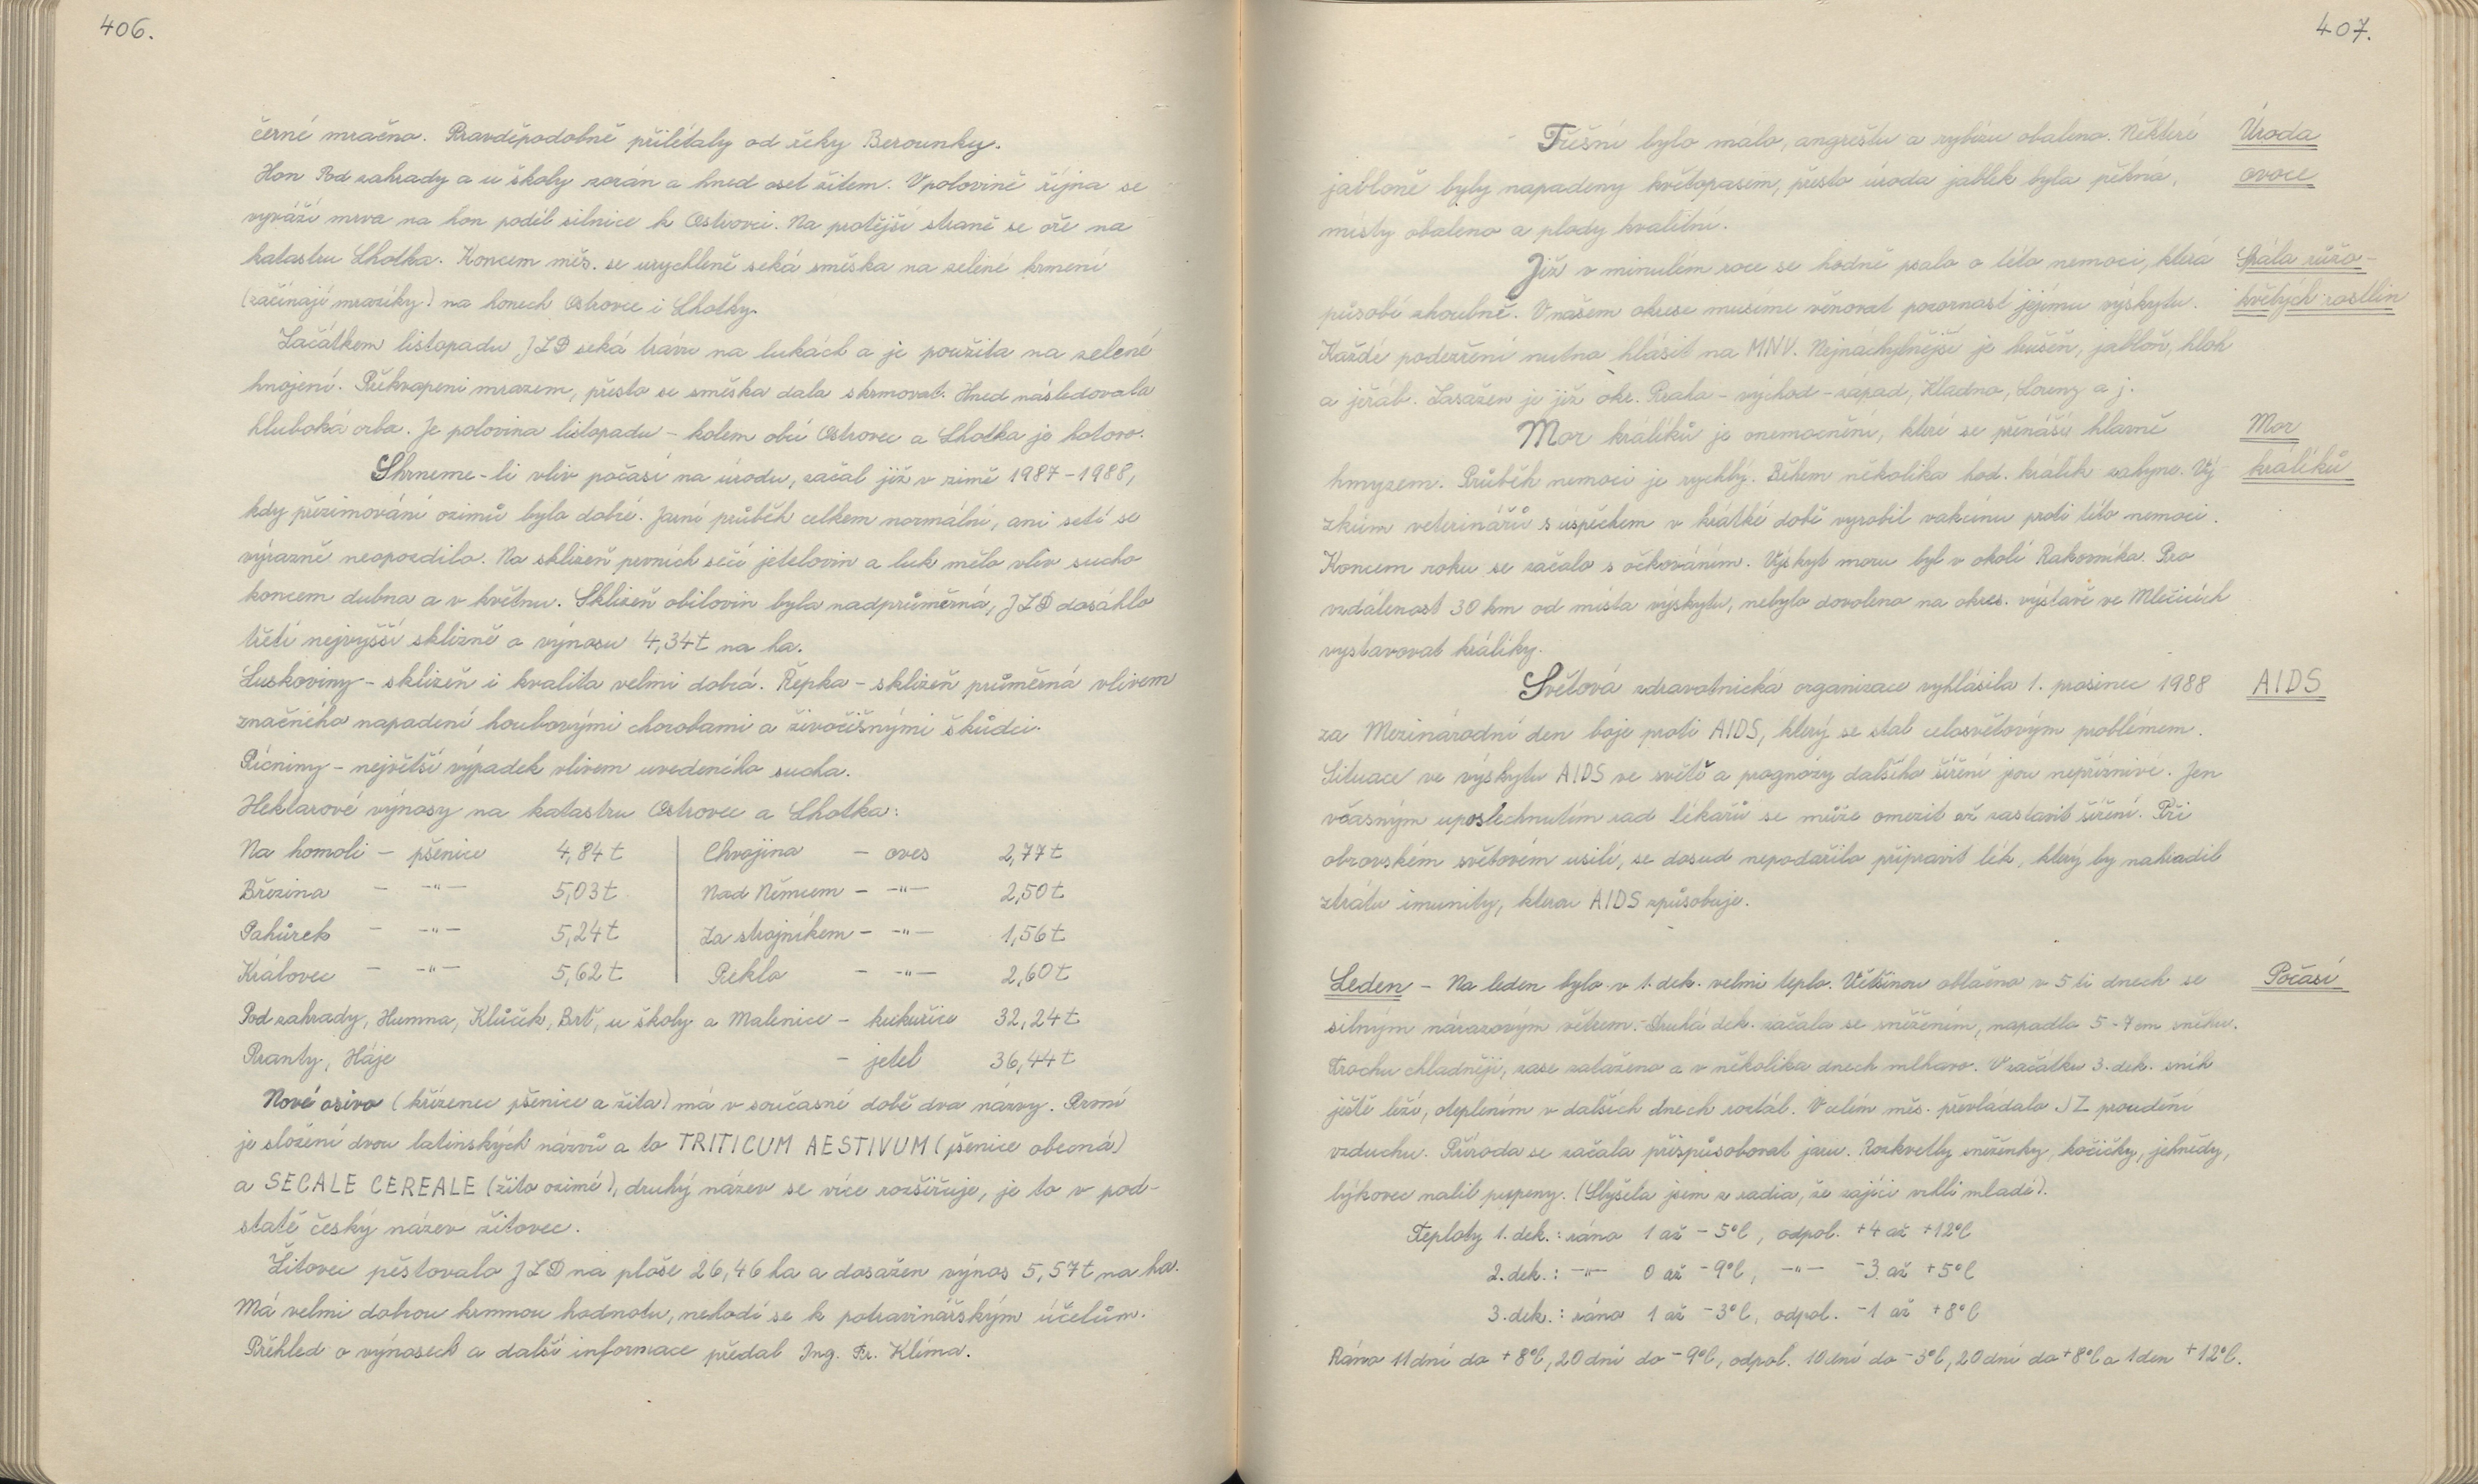 406.
černé mračno. Pravděpodobně přilétaly od řeky Berounky.
Hon Pod zahrady a u školy zorán a hned oset žitem. V polovině října se
vyváží mrva na hon podél silnice k Ostrovci. Na protější straně se oře na
katastru Lhotka. Koncem měs. se urychleně seká směska na zelené krmení
(začínají mrazíky) na honech Ostrovce i Lhotky.
Začátkem listopadu JZD seká trávu na lukách a je použita na zelené
hnojení. Překvapeni mrazem, přesto se směska dala skrmovat. Hned následovala
hluboká orba. Je polovina listopadu – kolem obcí Ostrovec a Lhotka je hotovo.
Shrneme-li vliv počasí na úrodu, začal již v zimě 1987-1988,
kdy přezimování ozimů bylo dobré. Jarní průběh celkem normální, ani setí se
výrazně neopozdilo. Na sklizeň prvních sečí jetelovin a luk mělo vliv sucho
koncem dubna a v květnu. Sklizeň obilovin byla nadprůměrná, JZD dosáhlo
třetí nejvyšší sklizně a výnosu 4,34t na ha.
Luskoviny – sklizeň i kvalita velmi dobrá. Řepka – sklizeň průměrná vlivem
značného napadení houbovými chorobami a živočišnými škůdci.
Pícniny – největší výpadek vlivem uvedeného sucha.
Hektarové výnosy na katastru Ostrovec a Lhotka:
Na homoli – pšenice 4,84t | Chvojina – oves 2,77t
Březina – -"- 5,03t | Nad Němcem – -"- 2,50t
Pahůrek – -"- 5,24t | Za strojníkem – -"- 1,56t
Královec – -"- 5,62t | Peklo – -"- 2,60t
Pod zahrady, Humna, Klůček, Brť, u školy a Malenice – kukuřice 32,24t
Pranty, Háje – jetel 36,44t
Nové osivo (kříženec pšenice a žita) má v současné době dva názvy. První
je složení dvou latinských názvů a to TRITICUM AESTIVUM (pšenice obecná)
a SECALE CEREALE (žito ozimé), druhý název se více rozšiřuje, je to v pod-
statě český název žitovec.
Žitovec pěstovalo JZD na ploše 26,46 ha a dosažen výnos 5,57t na ha.
Má velmi dobrou krmnou hodnotu, nehodí se k potravinářským účelům.
Přehled o výnosech a další informace předal Ing. Fr. Klíma.
407.
Třešní bylo málo, angreštu a rybízu obaleno. Některé
Úroda
jabloně byly napadeny květopasem, přesto úroda jablek byla pěkná,
ovoce
místy obaleno a plody kvalitní.
Již v minulém roce se hodně psalo o této nemoci, která
Spála růžo-
působí zhoubně. V našem okrese musíme věnovat pozornost jejímu výskytu.
květých rostlin
Každé podezření nutno hlásit na MNV. Nejnáchylnější je hrušeň, jabloň, hloh
a jeřáb. Zasažen je již okr. Praha – východ – západ, Kladno, Louny a j.
Mor králíků je onemocnění, které se přenáší hlavně
Mor
hmyzem. Průběh nemoci je rychlý. Během několika hod. králík zahyne. Vý-
králíků
zkum veterinářů s úspěchem v krátké době vyrobil vakcínu proti této nemoci.
Koncem roku se začalo s očkováním. Výskyt moru byl v okolí Rakovníka. Pro
vzdálenost 30 km od místa výskytu, nebylo dovoleno na okres. výstavě ve Mlečicích
vystavovat králíky.
Světová zdravotnická organizace vyhlásila 1. prosinec 1988
AIDS
za Mezinárodní den boje proti AIDS, který se stal celosvětovým problémem.
Situace ve výskytu AIDS ve světě a prognózy dalšího šíření jsou nepříznivé. Jen
včasným uposlechnutím rad lékařů se může omezit až zastavit šíření. Při
obrovském světovém úsilí, se dosud nepodařilo připravit lék, který by nahradil
ztrátu imunity, kterou AIDS způsobuje.
Leden – Na leden bylo v 1. dek. velmi teplo. Většinou oblačno v 5ti dnech se
Počasí
silným nárazovým větrem. Druhá dek. začala se sněžením, napadlo 5-7 cm sněhu.
Trochu chladněji, zase zataženo a v několika dnech mlhavo. V začátku 3. dek. sníh
ještě leží, oteplením v dalších dnech roztál. V celém měs. převládalo JZ proudění
vzduchu. Příroda se začala přizpůsobovat jaru. Rozkvetly sněženky, kočičky, jehnědy,
lýkovec nalil pupeny. (Slyšela jsem z rádia, že zajíci vrhli mladé).
Teploty 1. dek.: ráno 1 až -5°C, odpol. +4 až +12°C
2. dek.: -"- 0 až -9°C, -"- -3 až +5°C
3. dek.: ráno 1 až -3°C, odpol. -1 až +8°C
Ráno 11 dní do +8°C, 20 dní do -9°C, odpol. 10 dní do -3°C, 20 dní do +8°C a 1 den +12°C.